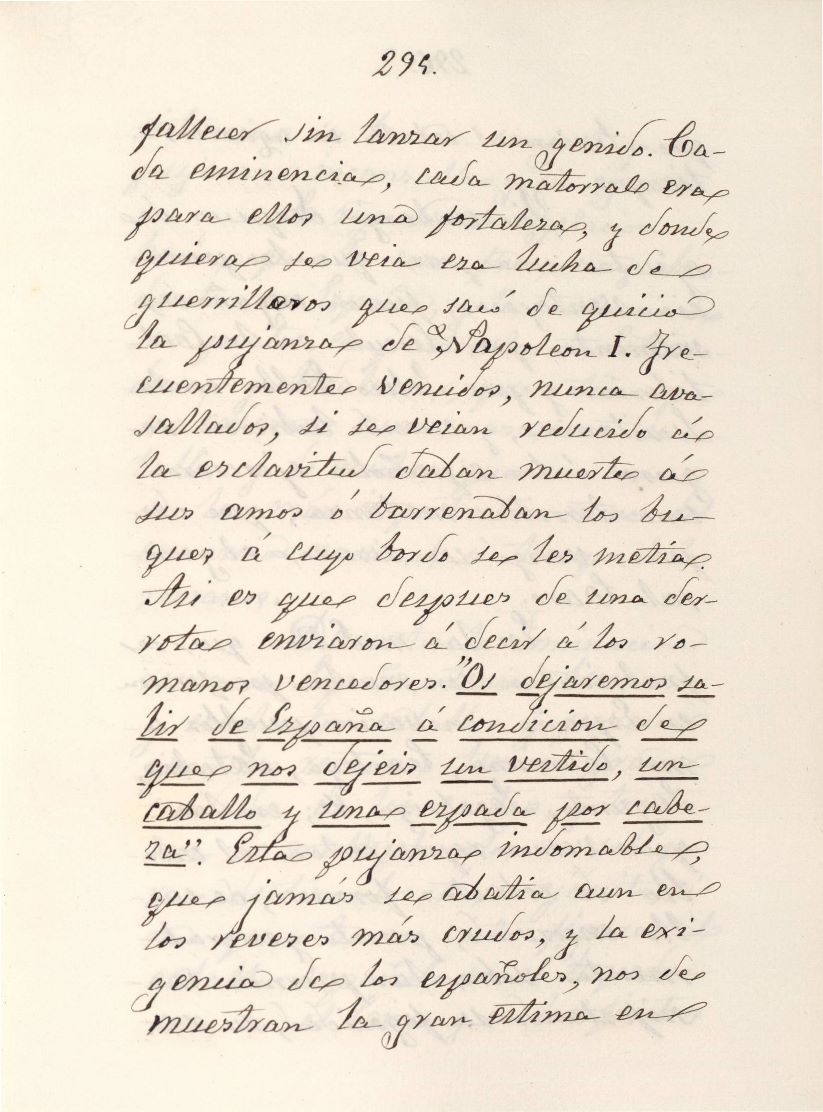 295.
fallecer sin lanzar un genido. Ca-
da eminencia, cada matorral era
para ellos una fortaleza, y donde
quiera se veia esa lucha de
guerrilleros que sacó de quicio
la pujanza de Napoleon I. Fre-
cuentemente vencidos, nunca ava-
sallados, si se veian reducido á
la esclavitud daban muerte á
sus amos ó barrenaban los bu-
ques á cuyo bordo se les metia.
Asi es que despues de una der-
rota enviaron á decir á los ro-
manos vencedores. "Os dejaremos sa-
lir de España á condicion de
que nos dejeis un vestido, un
caballo y una espada por cabe-
za". Esta pujanza indomable,
que jamás se abatia aun en
los reveses más crudos, y la exi-
gencia de los españoles, nos de
muestran la gran estima en